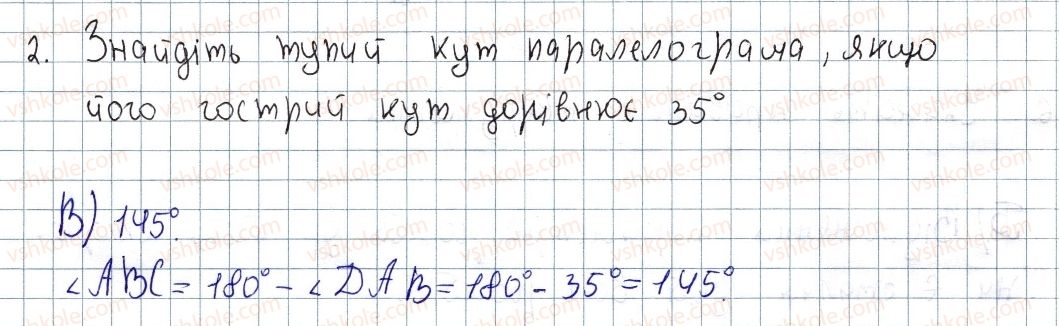 2. Знайдіть тупий кут паралелограма, якщо
його гострий кут дорівнює 35°
В) 145°.
∠ABC = 180° - ∠DAB = 180° - 35° = 145°.
vshkole.com